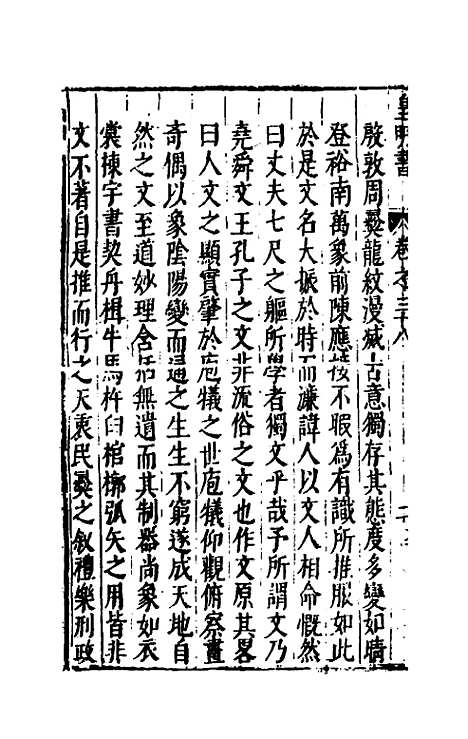 皇明書 卷之三十八
殷敦周彝龍紋漫滅古意獨存其態度多變如晴
登裕南萬象前陳應接不暇為有識所推服如此
於是文名大振於時而濂諱人以文人相命慨然
曰丈夫七尺之軀所學者獨文乎哉予所謂文乃
堯舜文王孔子之文非流俗之文也作文原其畧
曰人文之顯實肇於庖犠之世庖犠仰觀俯察畫
奇偶以象陰陽變而通之生生不窮遂成天地自
然之文至道妙理含括無遺而其制器尚象如衣
裳棟宇書契舟楫牛馬杵臼棺槨弧矢之用皆非
文不著自是推而行之天衷民彝之叙禮樂刑政